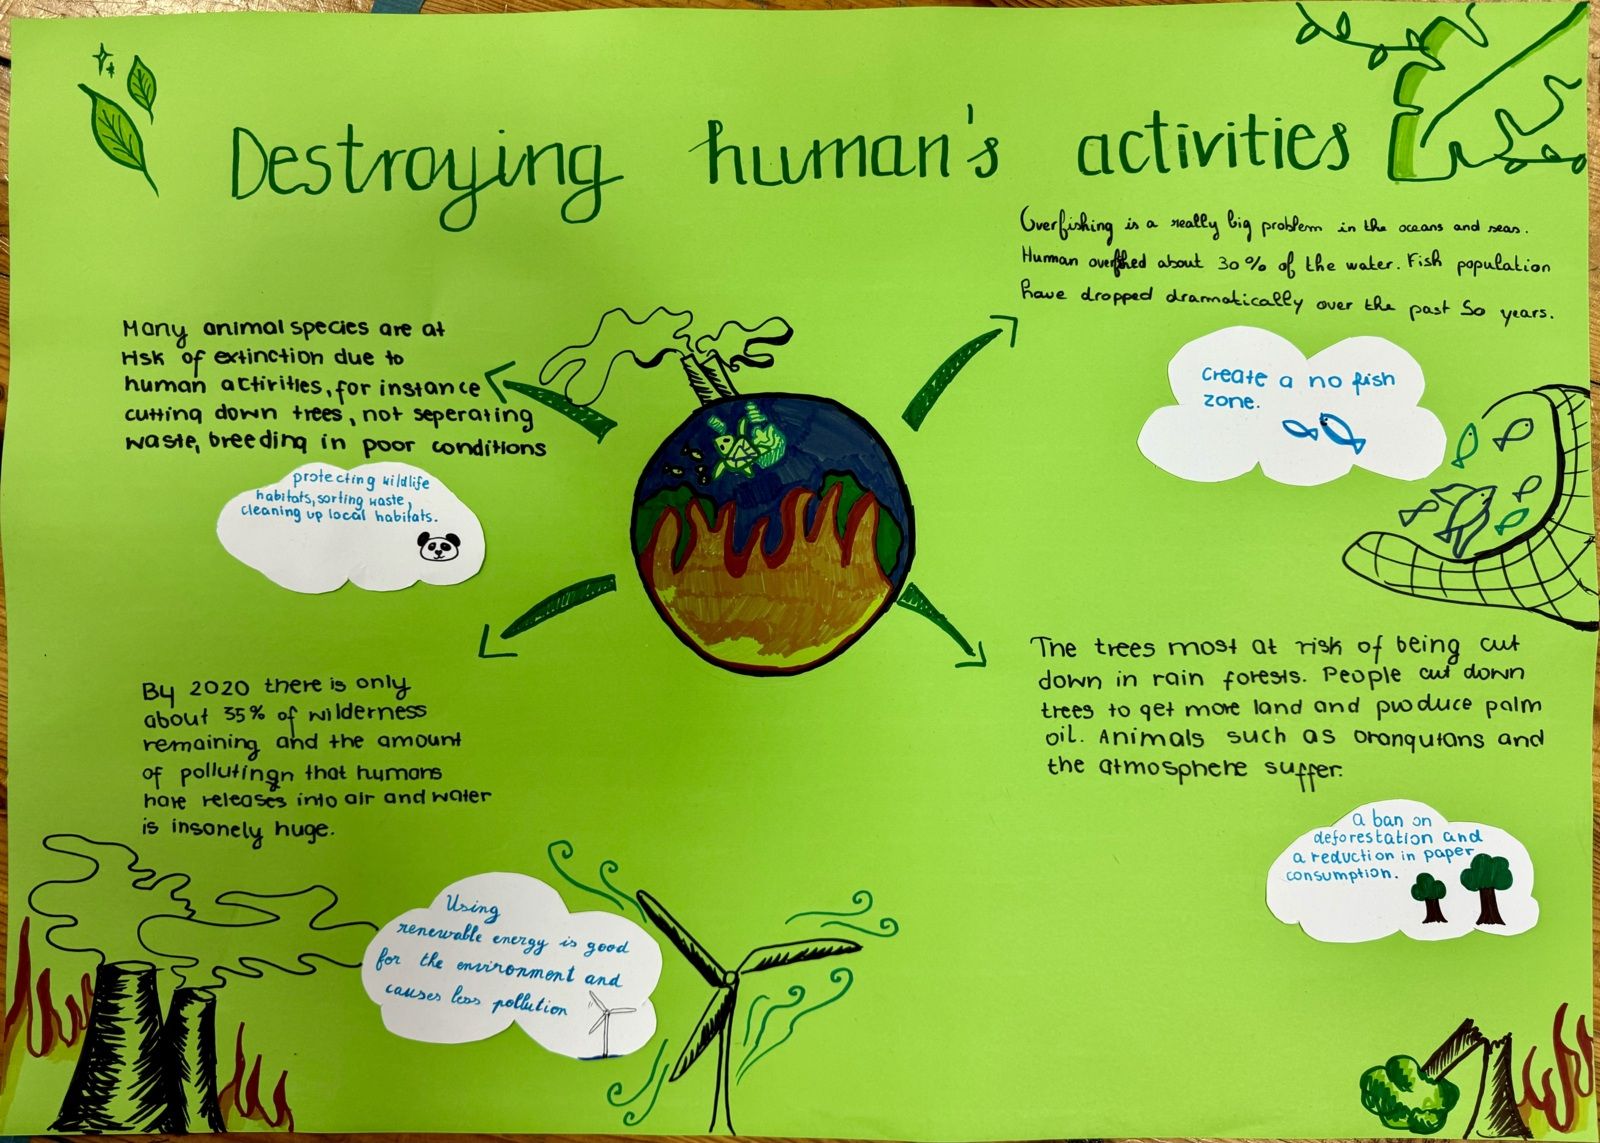 Destroying human's activities
Overfishing is a really big problem in the oceans and seas.
Human overfished about 30% of the water. Fish population
have dropped dramatically over the past 50 years.
Create a no fish
zone.
Many animal species are at
risk of extinction due to
human activities, for instance
cutting down trees, not seperating
waste, breeding in poor conditions
protecting wildlife
habitats, sorting waste,
cleaning up local habitats.
By 2020 there is only
about 35% of wilderness
remaining and the amount
of pollutingn that humans
have releases into air and water
is insanely huge.
Using
renewable energy is good
for the environment and
causes less pollution
The trees most at risk of being cut
down in rain forests. People cut down
trees to get more land and produce palm
oil. Animals such as orangutans and
the atmosphere suffer.
a ban on
deforestation and
a reduction in paper
consumption.